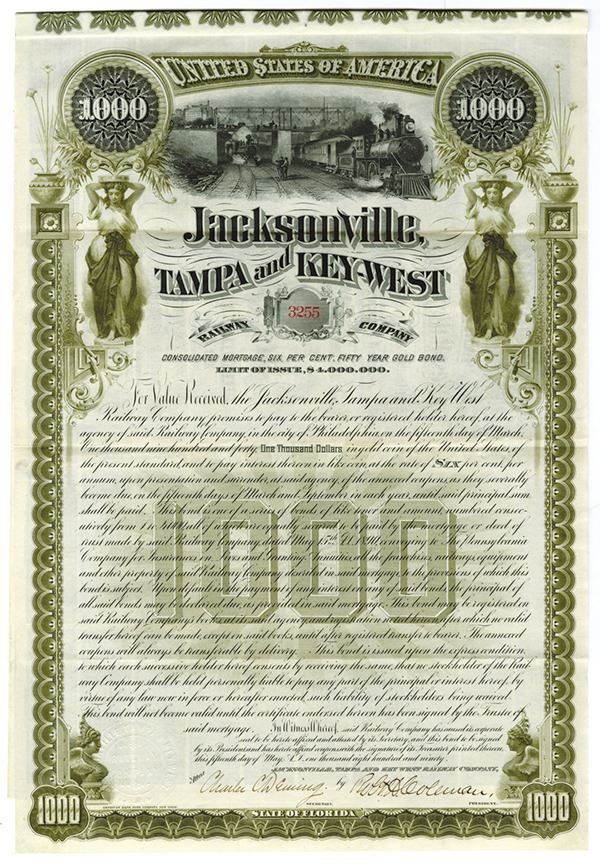 UNITED STATES OF AMERICA
1000 1000
Jacksonville,
TAMPA and KEY-WEST
3255
RAILWAY COMPANY
CONSOLIDATED MORTGAGE, SIX PER CENT. FIFTY YEAR GOLD BOND.
LIMIT OF ISSUE, $4,000,000.
For Value Received, the Jacksonville, Tampa and Key West
Railway Company promises to pay to the bearer or registered holder hereof, at the
agency of said Railway Company, in the city of Philadelphia on the fifteenth day of March,
One thousand nine hundred and forty One Thousand Dollars in gold coin of the United States, of
the present standard, and to pay interest thereon in like coin, at the rate of SIX per cent. per
annum, upon presentation and surrender, at said agency, of the annexed coupons, as they severally
become due, on the fifteenth days of March and September in each year, until said principal sum
shall be paid. This bond is one of a series of bonds of like tenor and amount, numbered consec-
utively from 1 to 4000, all of which are equally secured by a mortgage or deed of
trust made by said Railway Company, dated May 15th, A.D. 1890, conveying to the Pennsylvania
Company for Insurances on Lives and Granting Annuities, all the franchises, railways, equipment
and other property of said Railway Company described in said mortgage, to the provisions of which this
bond is subject. Upon default in the payment of any interest on any of said bonds, the principal of
all said bonds may be declared due, as provided in said mortgage. This bond may be registered on
said Railway Company's books at its said agency, and registration noted hereon, after which no valid
transfer hereof can be made, except on said books, until after registered transfer to bearer. The annexed
coupons will always be transferable by delivery. This bond is issued upon the express condition,
to which each successive holder hereof consents by receiving the same, that no stockholder of the Rail-
way Company shall be held personally liable to pay any part of the principal or interest hereof, by
virtue of any law now in force or hereafter enacted, such liability of stockholders being waived.
This bond will not become valid until the certificate endorsed hereon has been signed by the Trustee of
said mortgage. In Witness Whereof, said Railway Company has caused its corporate
seal to be hereto affixed and attested by its Secretary, and this bond to be signed
by its President and has hereto affixed coupons with the signature of its Treasurer printed thereon,
this fifteenth day of May, A.D. one thousand eight hundred and ninety.
JACKSONVILLE, TAMPA AND KEY WEST RAILWAY COMPANY,
Attest Charles C Deming by Robt H Coleman,
SECRETARY. PRESIDENT.
1000 1000
AMERICAN BANK NOTE COMPANY, NEW YORK.
STATE OF FLORIDA
1000